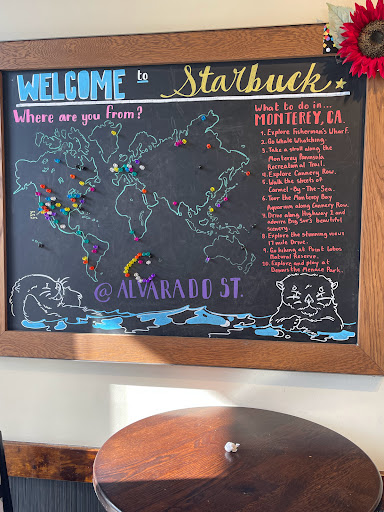 WELCOME to Starbuck
Where are you from?
What to do in...
MONTEREY, CA.
1. Explore Fisherman's Wharf.
2. Go Whale Whatching.
3. Take a stroll along the
Monterey Peninsula
Recreational Trail.
4. Explore Cannery Row.
5. Walk the streets of
Carmel-By-The-Sea.
6. Tour the Monterey Bay
Aquarium along Cannery Row.
7. Drive along Highway 1 and
admire Big Sur's beautiful
scenery.
8. Explore the stunning views
17 mile Drive.
9. Go hiking at Point Lobos
Natural Reserve.
10. Explore and play at
Dennis the Menace Park.
@ ALVARADO ST.